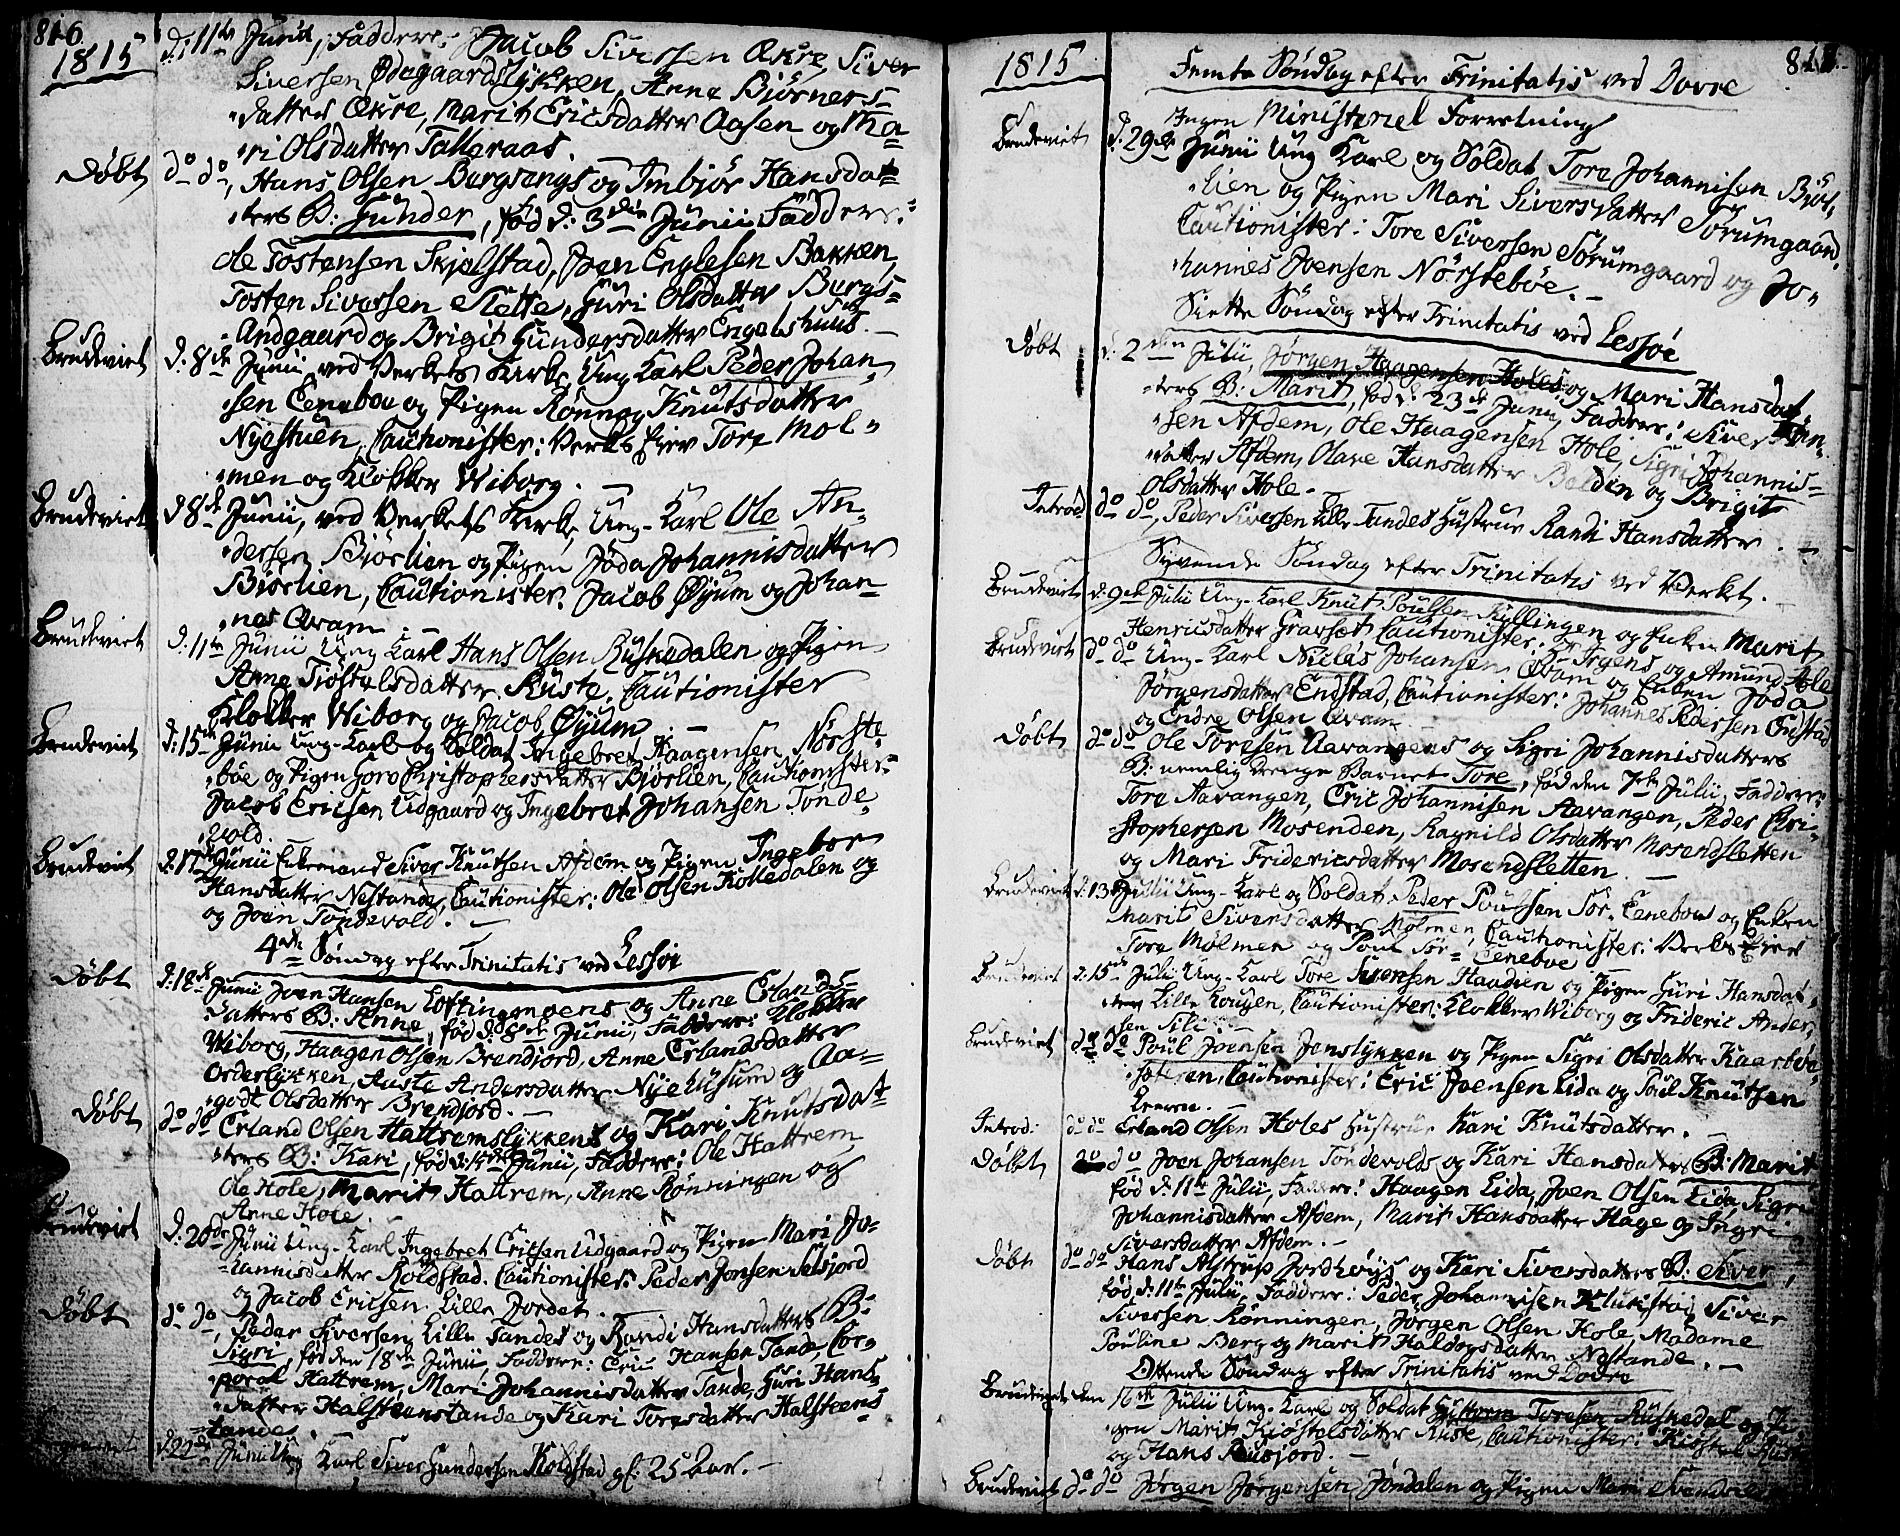 816.
1815
d: 11te Junii, Faddere: Jacob Siversen Økre, Siver
Siversen Ødegaardslykken, Anne Biørners-
datter Økre, Marit Ericsdatter Aasen og Ma-
ri Olsdatter Talleraas.
Døbt do do, Hans Olsen Bergsengs og Imbjør Hansdat-
ters B: Gunder, fød d: 3die Junii, Faddere:
Ole Tostensen Skjelstad, Joen Englesen Bakken,
Tosten Siversen Slette, Guri Olsdatter Bergs-
Andgaard og Brigit Gundersdatter Engelshuus.
Brudeviet d: 8de Junii, ved Verkets Kirke, Ung Karl Peder Johan-
sen Enebou og Pigen Rønnog Knutsdatter
Nyestuen, Cautionister: Verks Eier Tore Mol-
men og Klokker Wiborg.
Brudeviet d 8de Junii, ved Verkets Kirke, Ung-Karl Ole An-
dersen Biørlien og Pigen Jøda Johannisdatter
Biørlien, Cautionister: Jacob Øyum og Johan-
nes Qvam.
Brudeviet d: 11te Junii Ung Karl Hans Olsen Ruskedalen og Pigen
Anne Tiøstelsdatter Ruste, Cautionister
Klokker Wiborg og Jacob Øyum.
Brudeviet d: 15de Junii Ung-Karl og Soldat Ingebret Haagensen Nørste-
bøe og Pigen Goro Christophersdatter Biørlien, Cautionister:
Jacob Ericsen Udgaard og Ingebret Johansen Tønde-
vold.
Brudeviet d: 17de Junii Enkemand Siver Knutsen Afdem og Pigen Ingebor
Hansdatter Nestande, Cautionister: Ole Olsen Kolledalen og
og Joen Tøndevold.
4de Søndag efter Trinitatis ved Lessøe
Døbt d: 18de Junii Joen Hansen Loftingmoens og Anne Erlands-
datters B: Anne, fød d: 8de Junii, Faddere: Klokker
Wiborg, Haagen Olsen Brendjord, Anne Erlandsdatter
Orderlykken, Auste Andersdatter Nyehusum og Aa-
godt Olsdatter Brendjord.
Døbt do do Erland Olsen Hattremslykkens og Kari Knutsdat-
ters B: Kari, fød d: 15de Junii, Faddere: Ole Hattrem,
Ole Hole, Marit Hattrem, Anne Rønningen og
Anne Hole.
Brudeviet d: 20de Junii Ung-Karl Ingebret Ericsen Udgaard og Pigen Mari Jo-
hannisdatter Koldstad. Cautionister: Peder Jonsen Selsjord
og Jacob Ericsen Lille Jordet.
Døbt do do, Peder Siversen Lille Tandes og Randi Hansdatters B:
Sigri, fød den 18de Junii, Faddere: Eric Hansen Tande, Cor-
poral Hattrem, Mari Johannisdatter Tande, Guri Hans-
datter Halsteenstande og Kari Toresdatter Halsteens-
tande.
d: 22de Junii Ung Karl Siver Gundersen Koldstad gl: 25 Aar.
1815 817.
Femte Søndag efter Trinitatis ved Dovre
Ingen Ministeriel Forretning
Brudeviet d: 29de Junii Ung Karl og Soldat Tore Johannisen Biør-
lien og Pigen Mari Siversdatter Sørumgaard.
Cautionister: Tore Siversen Sørumgaard og Jo-
hannes Joensen Nørstebøe.
Siette Søndag efter Trinitatis ved Lessøe
Døbt d. 2den Julii, Jørgen Haagensen Holes og Mari Hansdat-
ters B: Marit, fød d: 23de Junii, Faddere: Siver Han-
sen Afdem, Ole Haagensen Hole, Sigri Johannis-
datter Afdem, Olave Hansdatter og Brigit
Olsdatter Hole.
Introd do do, Peder Siversen Lille Tandes Hustrue Randi Hansdatter.
Syvende Søndag efter Trinitatis ved Verket.
Brudeviet d. 9de Julii Ung-Karl Knut Poulsen Kyllingen og Enken Marit
Henricsdatter Gravset Cautionister: Hr Irgens og Amund Hole
Brudeviet do do Ung-Karl Niclas Johansen Qvam og Enken Jøda
Jørgensdatter Endstad, Cautionister: Johannes Pedersen Endstad
og Endre Olsen Qvam.
Døbt do do Ole Toresen Aavangens og Sigri Johannisdatters
B: nemlig Drenge Barnet Tore, fød den 7de Julii, Faddere:
Tore Aavangen, Eric Johannisen Aavangen, Peder Chri-
stophersen Mosenden, Ragnild Olsdatter Mosendsletten
og Mari Fridericsdatter Mosendsletten.
Brudeviet d. 13de Julii Ung-Karl og Soldat Peder Poulsen Sør-Enebou og Enken
Marit Siversdatter Mølmen, Cautionister: Verks Eier
Tore Mølmen og Poul Sør-Eneboe
Brudeviet d: 15de Julii Ung-Karl Tore Siversen Haadien og Pigen Guri Hansdat-
ter Lille Kougen, Cautionister: Klokker Wiborg og Frideric Ander-
sen Sili.
Brudeviet do do Poul Joensen Jenslykken og Pigen Sigri Olsdatter Kaarbøe-
sæteren, Cautionister: Eric Joensen Lida og Poul Knutsen
Introd: do do Erland Olsen Holes Hustrue Kari Knutsdatter.
Døbt do Joen Johansen Tøndevolds og Kari Hansdatters B: Marit
fød d. 11te Julii, Faddere: Haagen Lida, Joen Olsen Lida, Sigri
Johannisdatter Afdem, Marit Hansdatter Hage og Ingri
Siversdatter Afdem.
Døbt do do Hans Alstrup Jordhøys og Kari Siversdatters B: Siver,
fød d. 11te Julii, Faddere: Peder Johannisen Klukstad, Siver
Siversen Rønningen, Jørgen Olsen Hole, Madame
Pauline Berg og Marit Haldogsdatter Nestande.
Ottende Søndag efter Trinitatis ved Dovre
Brudeviet den 16de Julii Ung-Karl og Soldat Guttorm Toresen Ruskedal og Pi-
gen Marit Kiøstelsdatter Ruste, Cautionister: Kiøstel Ruste
og Hans Rusjord.
Brudeviet do do Jørgen Jørgensen Jøndalen og Pigen Mari